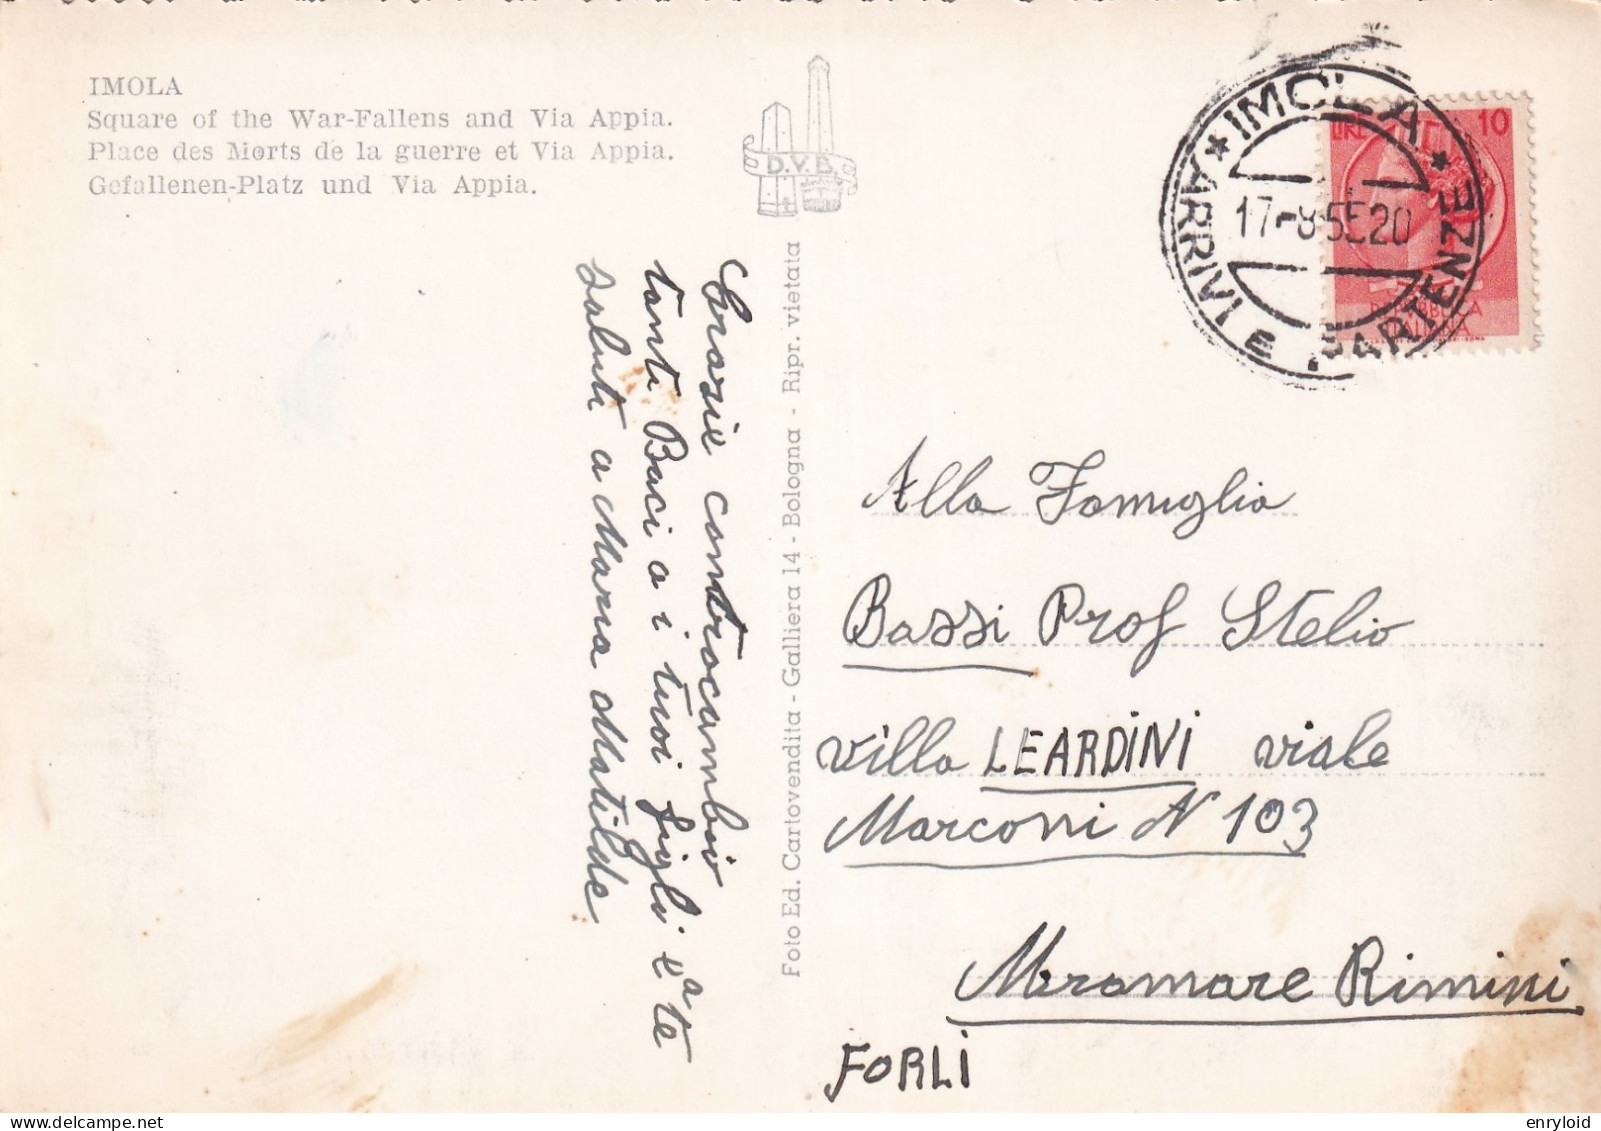 IMOLA
Square of the War-Fallens and Via Appia.
Place des Morts de la guerre et Via Appia.
Gefallenen-Platz und Via Appia.
D.V.B.
IMOLA
17-8-55 20
ARRIVI e PARTENZE
LIRE 10
REPUBBLICA
ITALIANA
Grazie contracambiò
tanti Baci a i tuoi figli e a te
saluti a Maria Matilde
Foto Ed. Cartovendita - Galliera 14 - Bologna - Ripr. vietata
Alla Famiglia
Bassi Prof Stelio
villa LEARDINI viale
Marconi N 103
Miramare Rimini
FORLI
enryloid